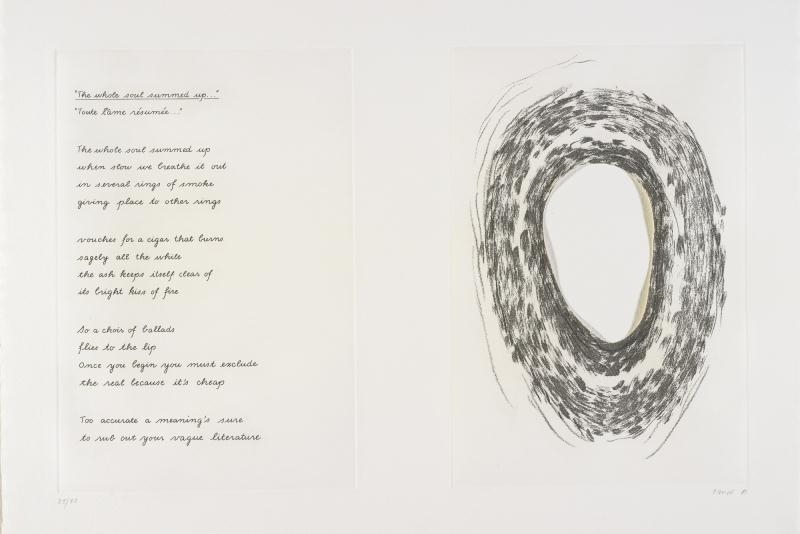 "The whole soul summed up..."
"Toute l'âme résumée..."
The whole soul summed up
when slow we breathe it out
in several rings of smoke
giving place to other rings
vouches for a cigar that burns
sagely all the while
the ash keeps itself clear of
its bright kiss of fire
So a choir of ballads
flies to the lip
Once you begin you must exclude
the real because it's cheap
Too accurate a meaning's sure
to rub out your vague literature